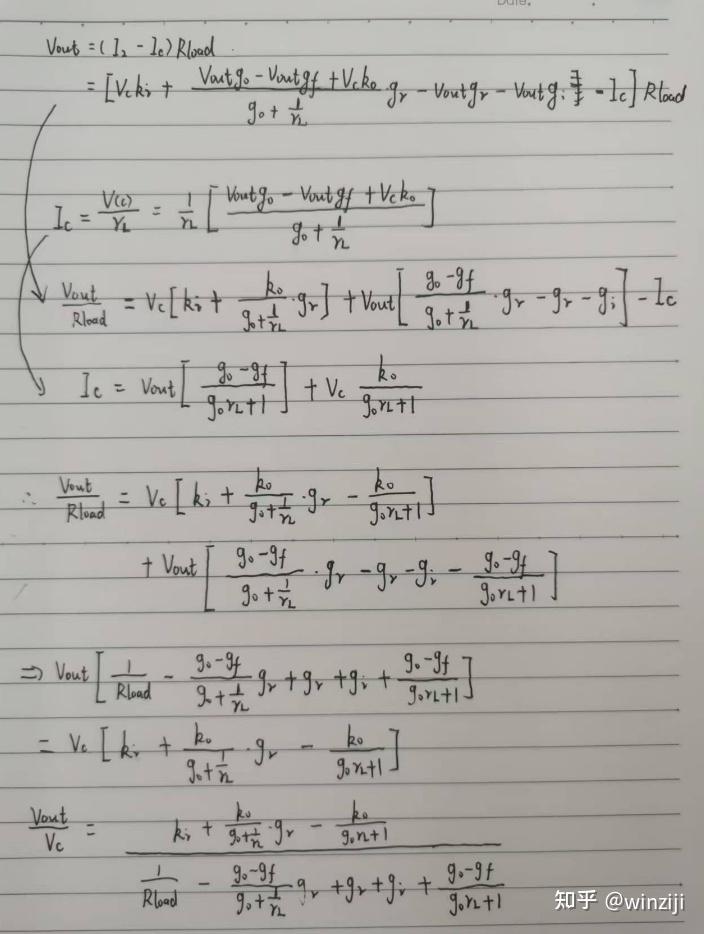 Date.
Vout = (I₂ - Ic) Rload
= [Vc ki + (Vout go - Vout gf + Vc ko)/(go + 1/rL) · gr - Vout gr - Vout gi - Ic] Rload
Ic = V(c)/rL = 1/rL [(Vout go - Vout gf + Vc ko)/(go + 1/rL)]
Vout/Rload = Vc [ki + ko/(go + 1/rL) · gr] + Vout [(go - gf)/(go + 1/rL) · gr - gr - gi] - Ic
Ic = Vout [(go - gf)/(go rL + 1)] + Vc ko/(go rL + 1)
∴ Vout/Rload = Vc [ki + ko/(go + 1/rL) · gr - ko/(go rL + 1)]
+ Vout [(go - gf)/(go + 1/rL) · gr - gr - gi - (go - gf)/(go rL + 1)]
⇒ Vout [1/Rload - (go - gf)/(go + 1/rL) gr + gr + gi + (go - gf)/(go rL + 1)]
= Vc [ki + ko/(go + 1/rL) · gr - ko/(go rL + 1)]
Vout/Vc = (ki + ko/(go + 1/rL) · gr - ko/(go rL + 1))/(1/Rload - (go - gf)/(go + 1/rL) gr + gr + gi + (go - gf)/(go rL + 1))
知乎 @winziji